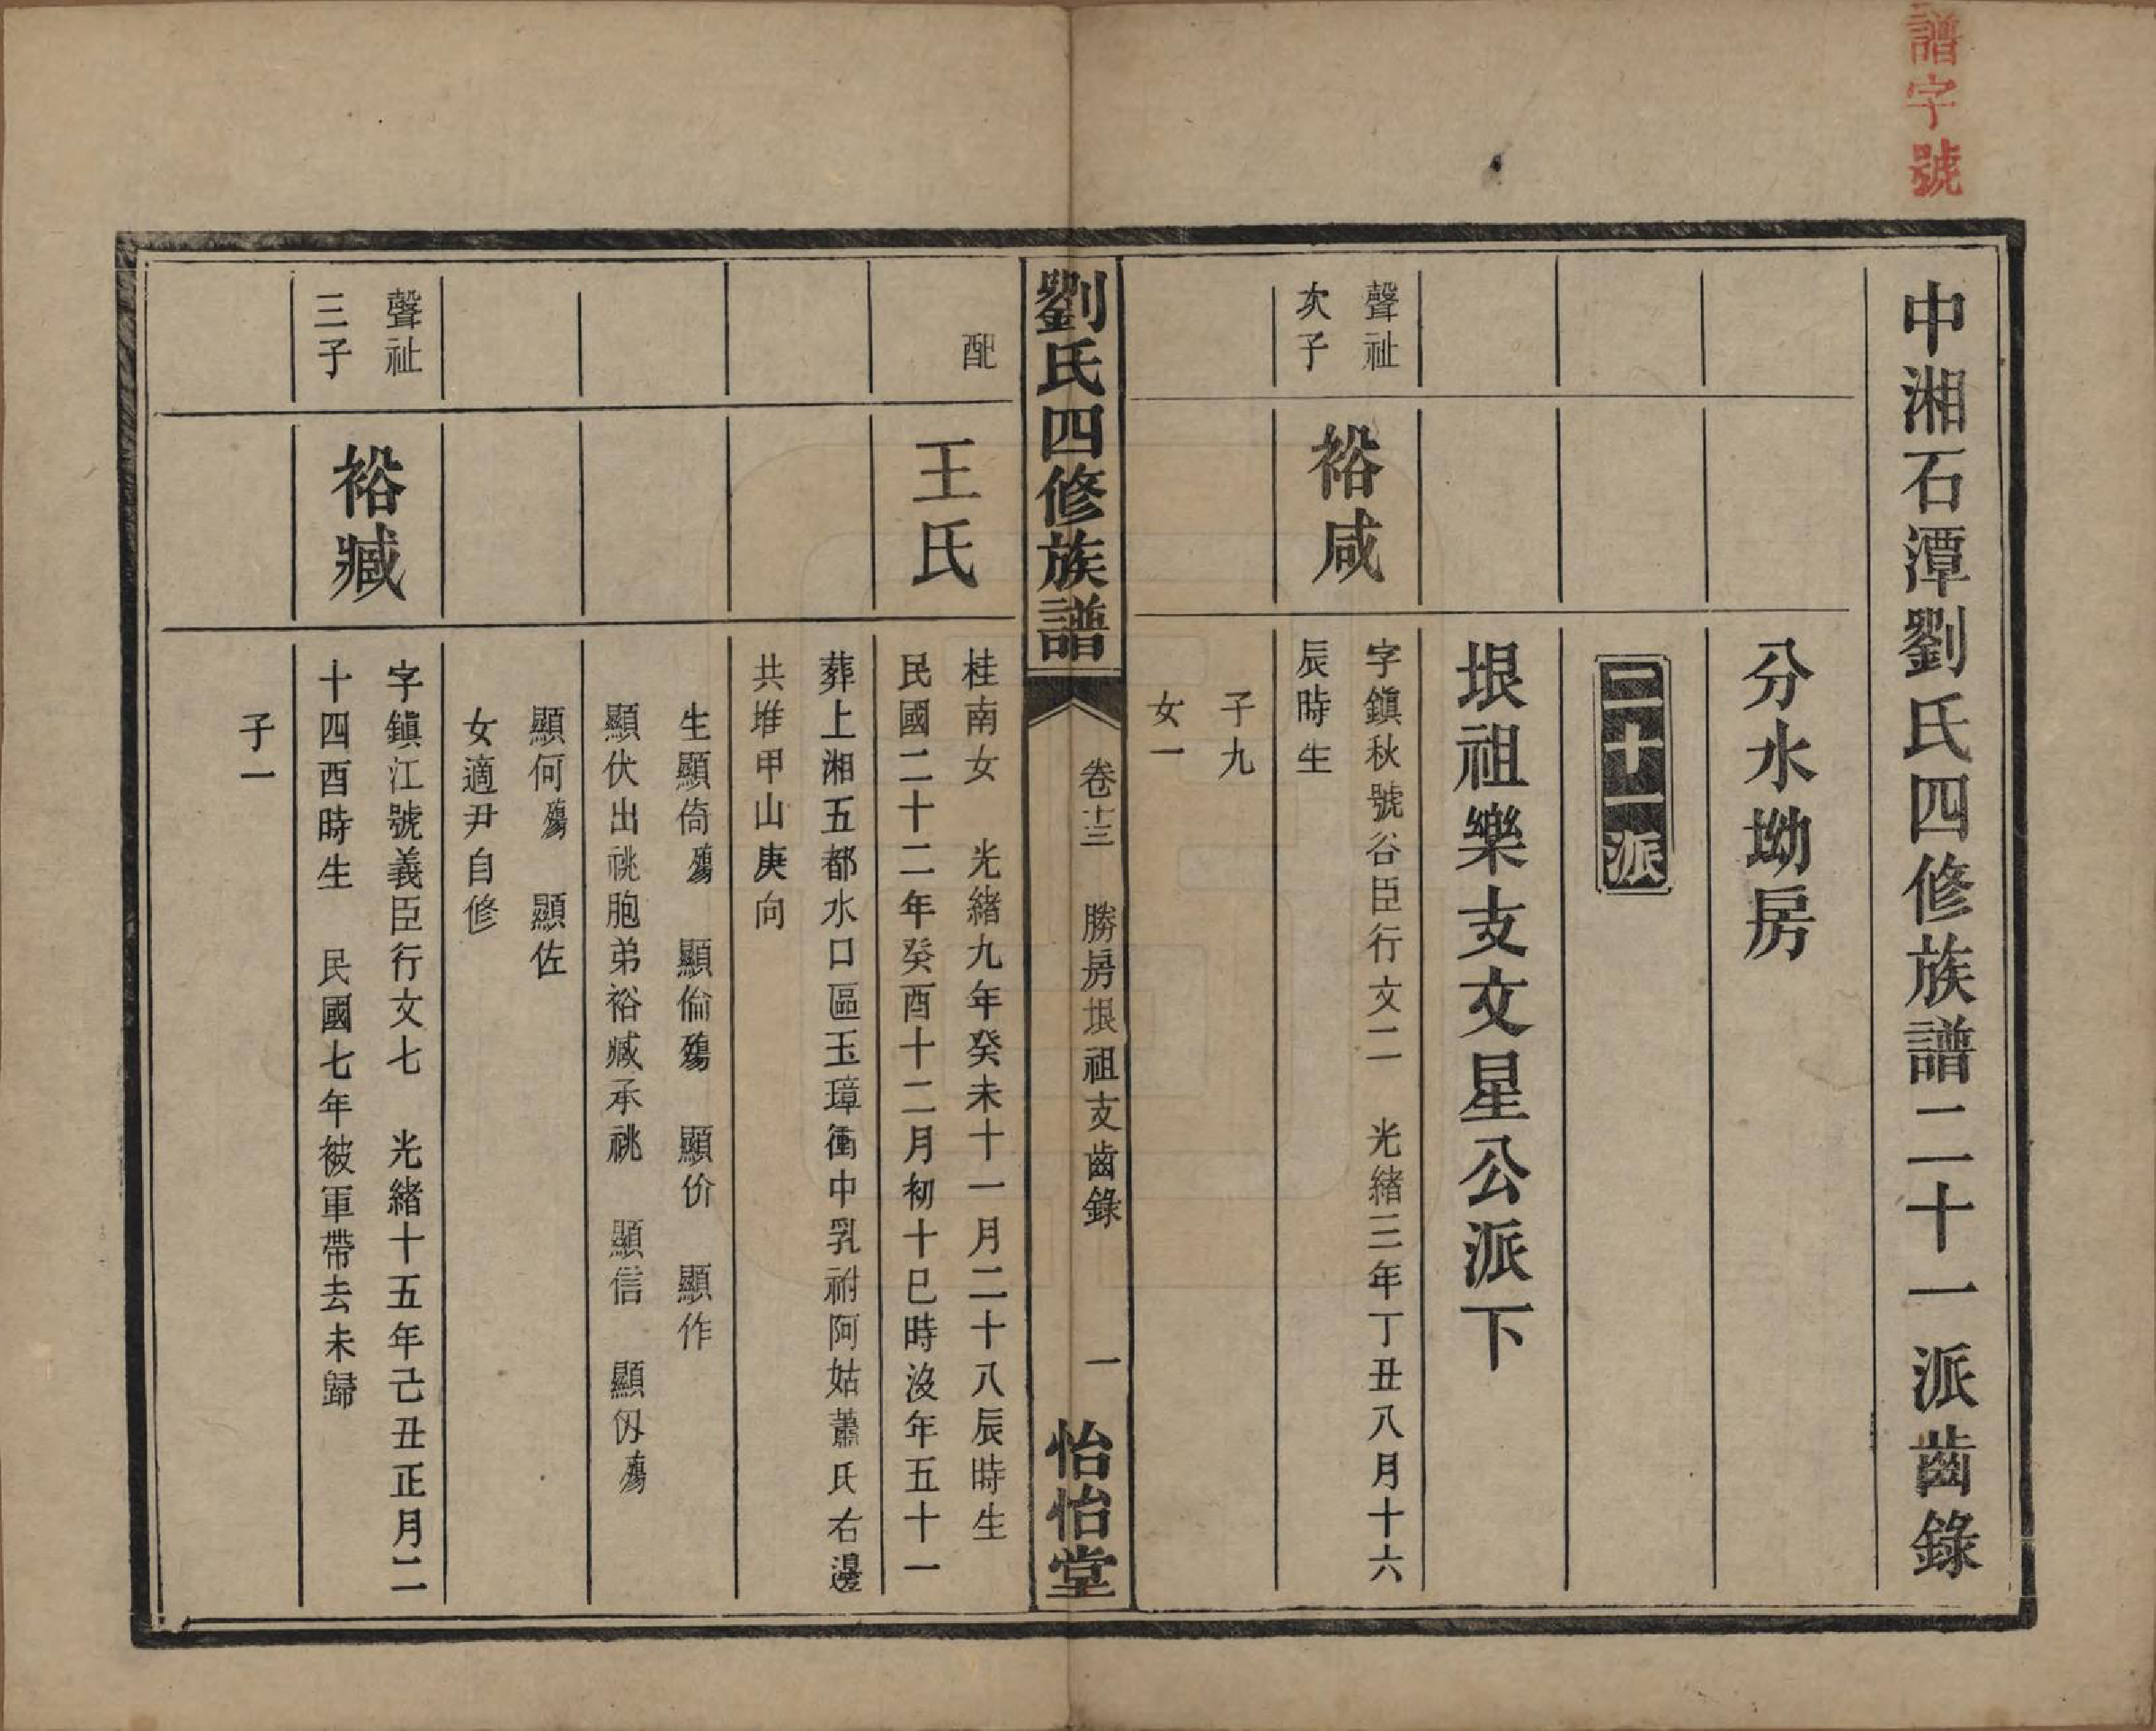 譜字號
中湘石潭劉氏四修族譜二十一派齒錄
分水坳房
二十一派
垠祖樂支文星公派下
聲祉
次子
裕咸
字鎮秋號谷臣行文二　光緒三年丁丑八月十六
辰時生
子九
女一
劉氏四修族譜
卷十三　勝房垠祖支齒錄　一
怡怡堂
配
王氏
桂南女　光緒九年癸未十一月二十八辰時生
民國二十二年癸酉十二月初十巳時沒年五十一
葬上湘五都水口區玉璋衝中乳祔阿姑蕭氏右邊
共堆甲山庚向
生顯倚殤　顯倫殤　顯价　顯作
顯伏出祧胞弟裕臧承祧　顯信　顯仭殤
顯何殤　顯佐
女適尹自修
聲祉
三子
裕臧
字鎮江號義臣行文七　光緒十五年己丑正月二
十四酉時生　民國七年被軍帶去未歸
子一